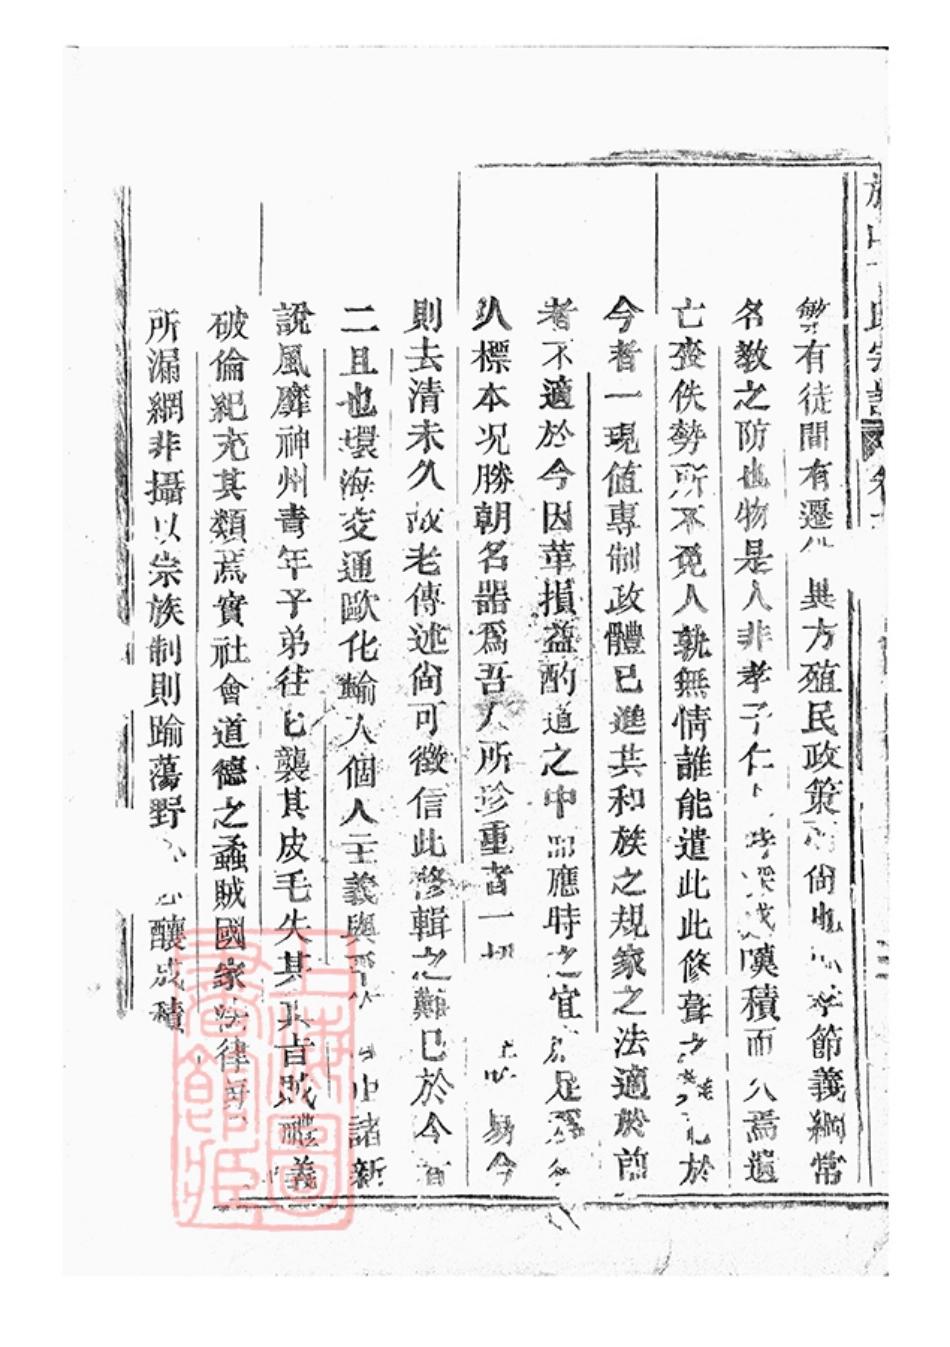 氏宗譜
繁有徒間有遷 異方殖民政策 尙 孝節義綱常
名教之防也物是人非孝子仁 時深 嘆積而久焉遺
亡喪佚勢所不免人孰無情誰能遣此此修葺之 於
今者一現値專制政體已進共和族之規家之法適於前
者不適於今因革損益酌道之中 應時之宜 足
人標本况勝朝名器爲吾人所珍重者一切 易今
則去淸未久故老傳述尙可徵信此修輯之難已於今
二且也環海交通歐化輸入個人主義與 中諸新
說風靡神州靑年子弟往 襲其皮毛失其眞旨賊禮義
破倫紀充其類蔑實社會道德之蟊賊國家法律
所漏網非攝以宗族制則踰蕩野 釀成積
上海圖書館藏